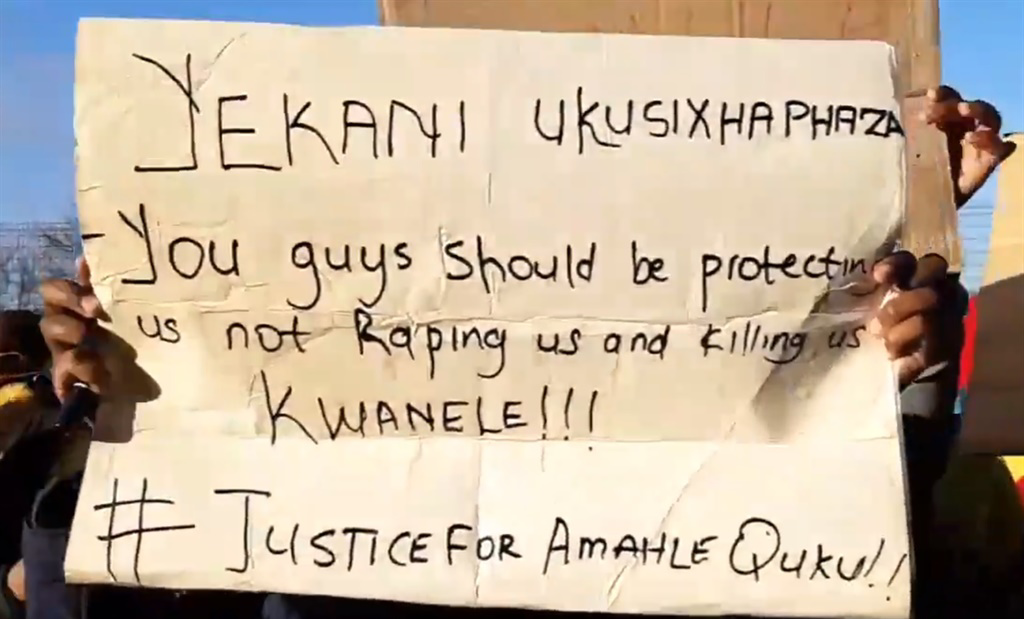 YEKANI UKUSIXHAPHAZA
- You guys should be protecting
us not Raping us and killing us
KWANELE!!!
# JUSTICE FOR AMAHLE QUKU!!